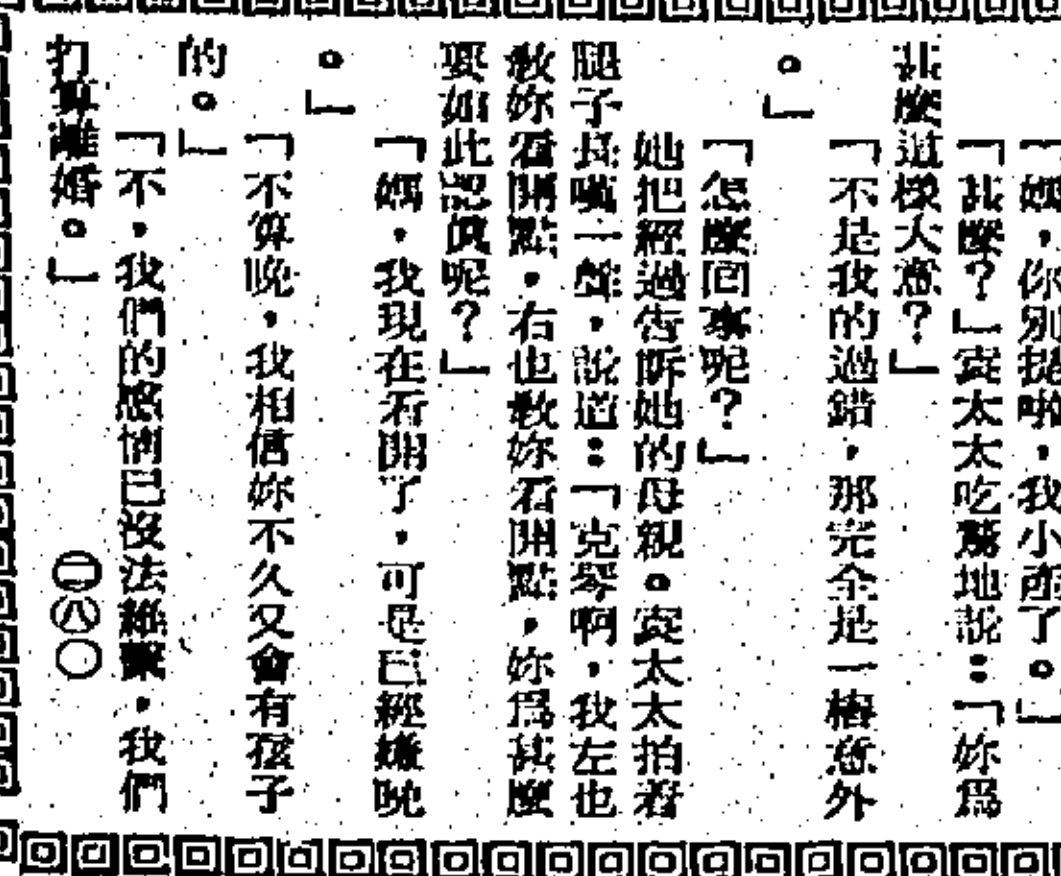 「媽,你別提啦,我小產了。」
「甚麼?」袁太太吃驚地說:「妳爲
甚麼這樣大意?」
「不是我的過錯,那完全是一樁意外
。」
「怎麼回事呢?」
她把經過告訴她的母親。袁太太拍着
腿子長嘆一聲,說道:「克琴啊,我左也
敎妳看開點,右也敎妳看開點,妳爲甚麼
要如此認眞呢?」
「媽,我現在看開了,可是已經嫌晚
。」
「不算晚,我相信妳不久又會有孩子
的。」
「不,我們的感情已沒法維繫,我們
打算離婚。」
㊁㊇〇